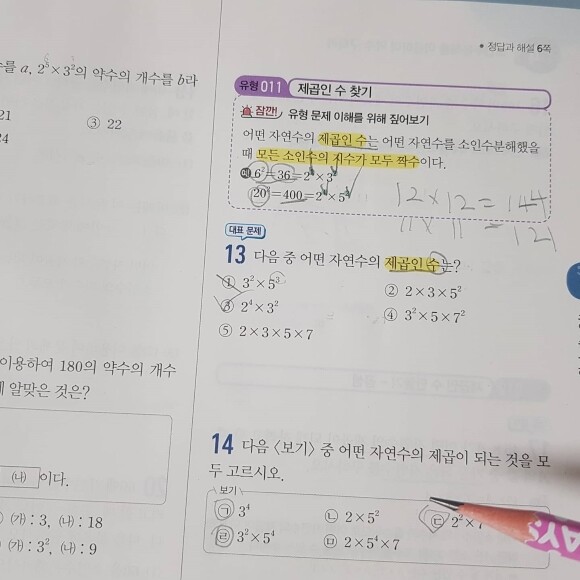 • 정답과 해설 6쪽
를 a, 2⁵×3²의 약수의 개수를 b라
21
③ 22
24
이용하여 180의 약수의 개수
알맞은 것은?
(나) 이다.
(가) : 3, (나) : 18
(가) : 3², (나) : 9
유형 011 제곱인 수 찾기
잠깐! 유형 문제 이해를 위해 짚어보기
어떤 자연수의 제곱인 수는 어떤 자연수를 소인수분해했을
때 모든 소인수의 지수가 모두 짝수이다.
예 6²=36=2²×3²
20²=400=2⁴×5²
12×12=144
11×11=121
대표 문제
13 다음 중 어떤 자연수의 제곱인 수는?
① 3²×5³ ② 2×3×5²
③ 2⁴×3² ④ 3²×5×7²
⑤ 2×3×5×7
14 다음 〈보기〉 중 어떤 자연수의 제곱이 되는 것을 모
두 고르시오.
보기
ㄱ 3⁴ ㄴ 2×5² ㄷ 2²×7
ㄹ 3²×5⁴ ㅁ 2×5⁴×7
AYS